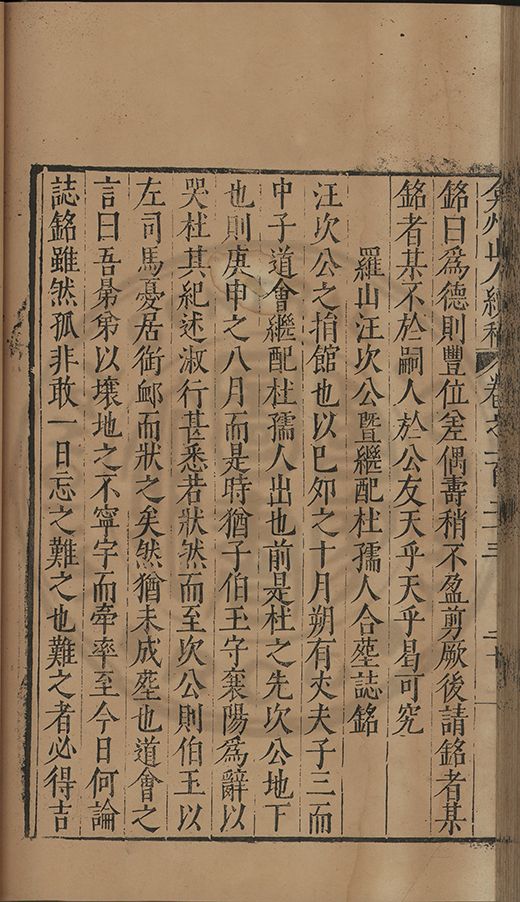 弇州山人續稿 卷之一百二十三 二十一
銘曰爲德則豐位差偶壽稍不盈剪厥後請銘者某
銘者某不於嗣人於公友天乎天乎曷可究
羅山汪次公暨繼配杜孺人合塟誌銘
汪次公之捐館也以巳夘之十月朔有丈夫子三而
中子道會繼配杜孺人出也前是杜之先次公地下
也則庚申之八月而是時猶子伯玉守襄陽爲辭以
哭杜其紀述淑行甚悉若狀然而至次公則伯玉以
左司馬憂居銜䘏而狀之矣然猶未成塟也道會之
言曰吾㬅弟以壤地之不寧字而牽率至今日何論
誌銘雖然孤非敢一日忘之難之也難之者必得吉